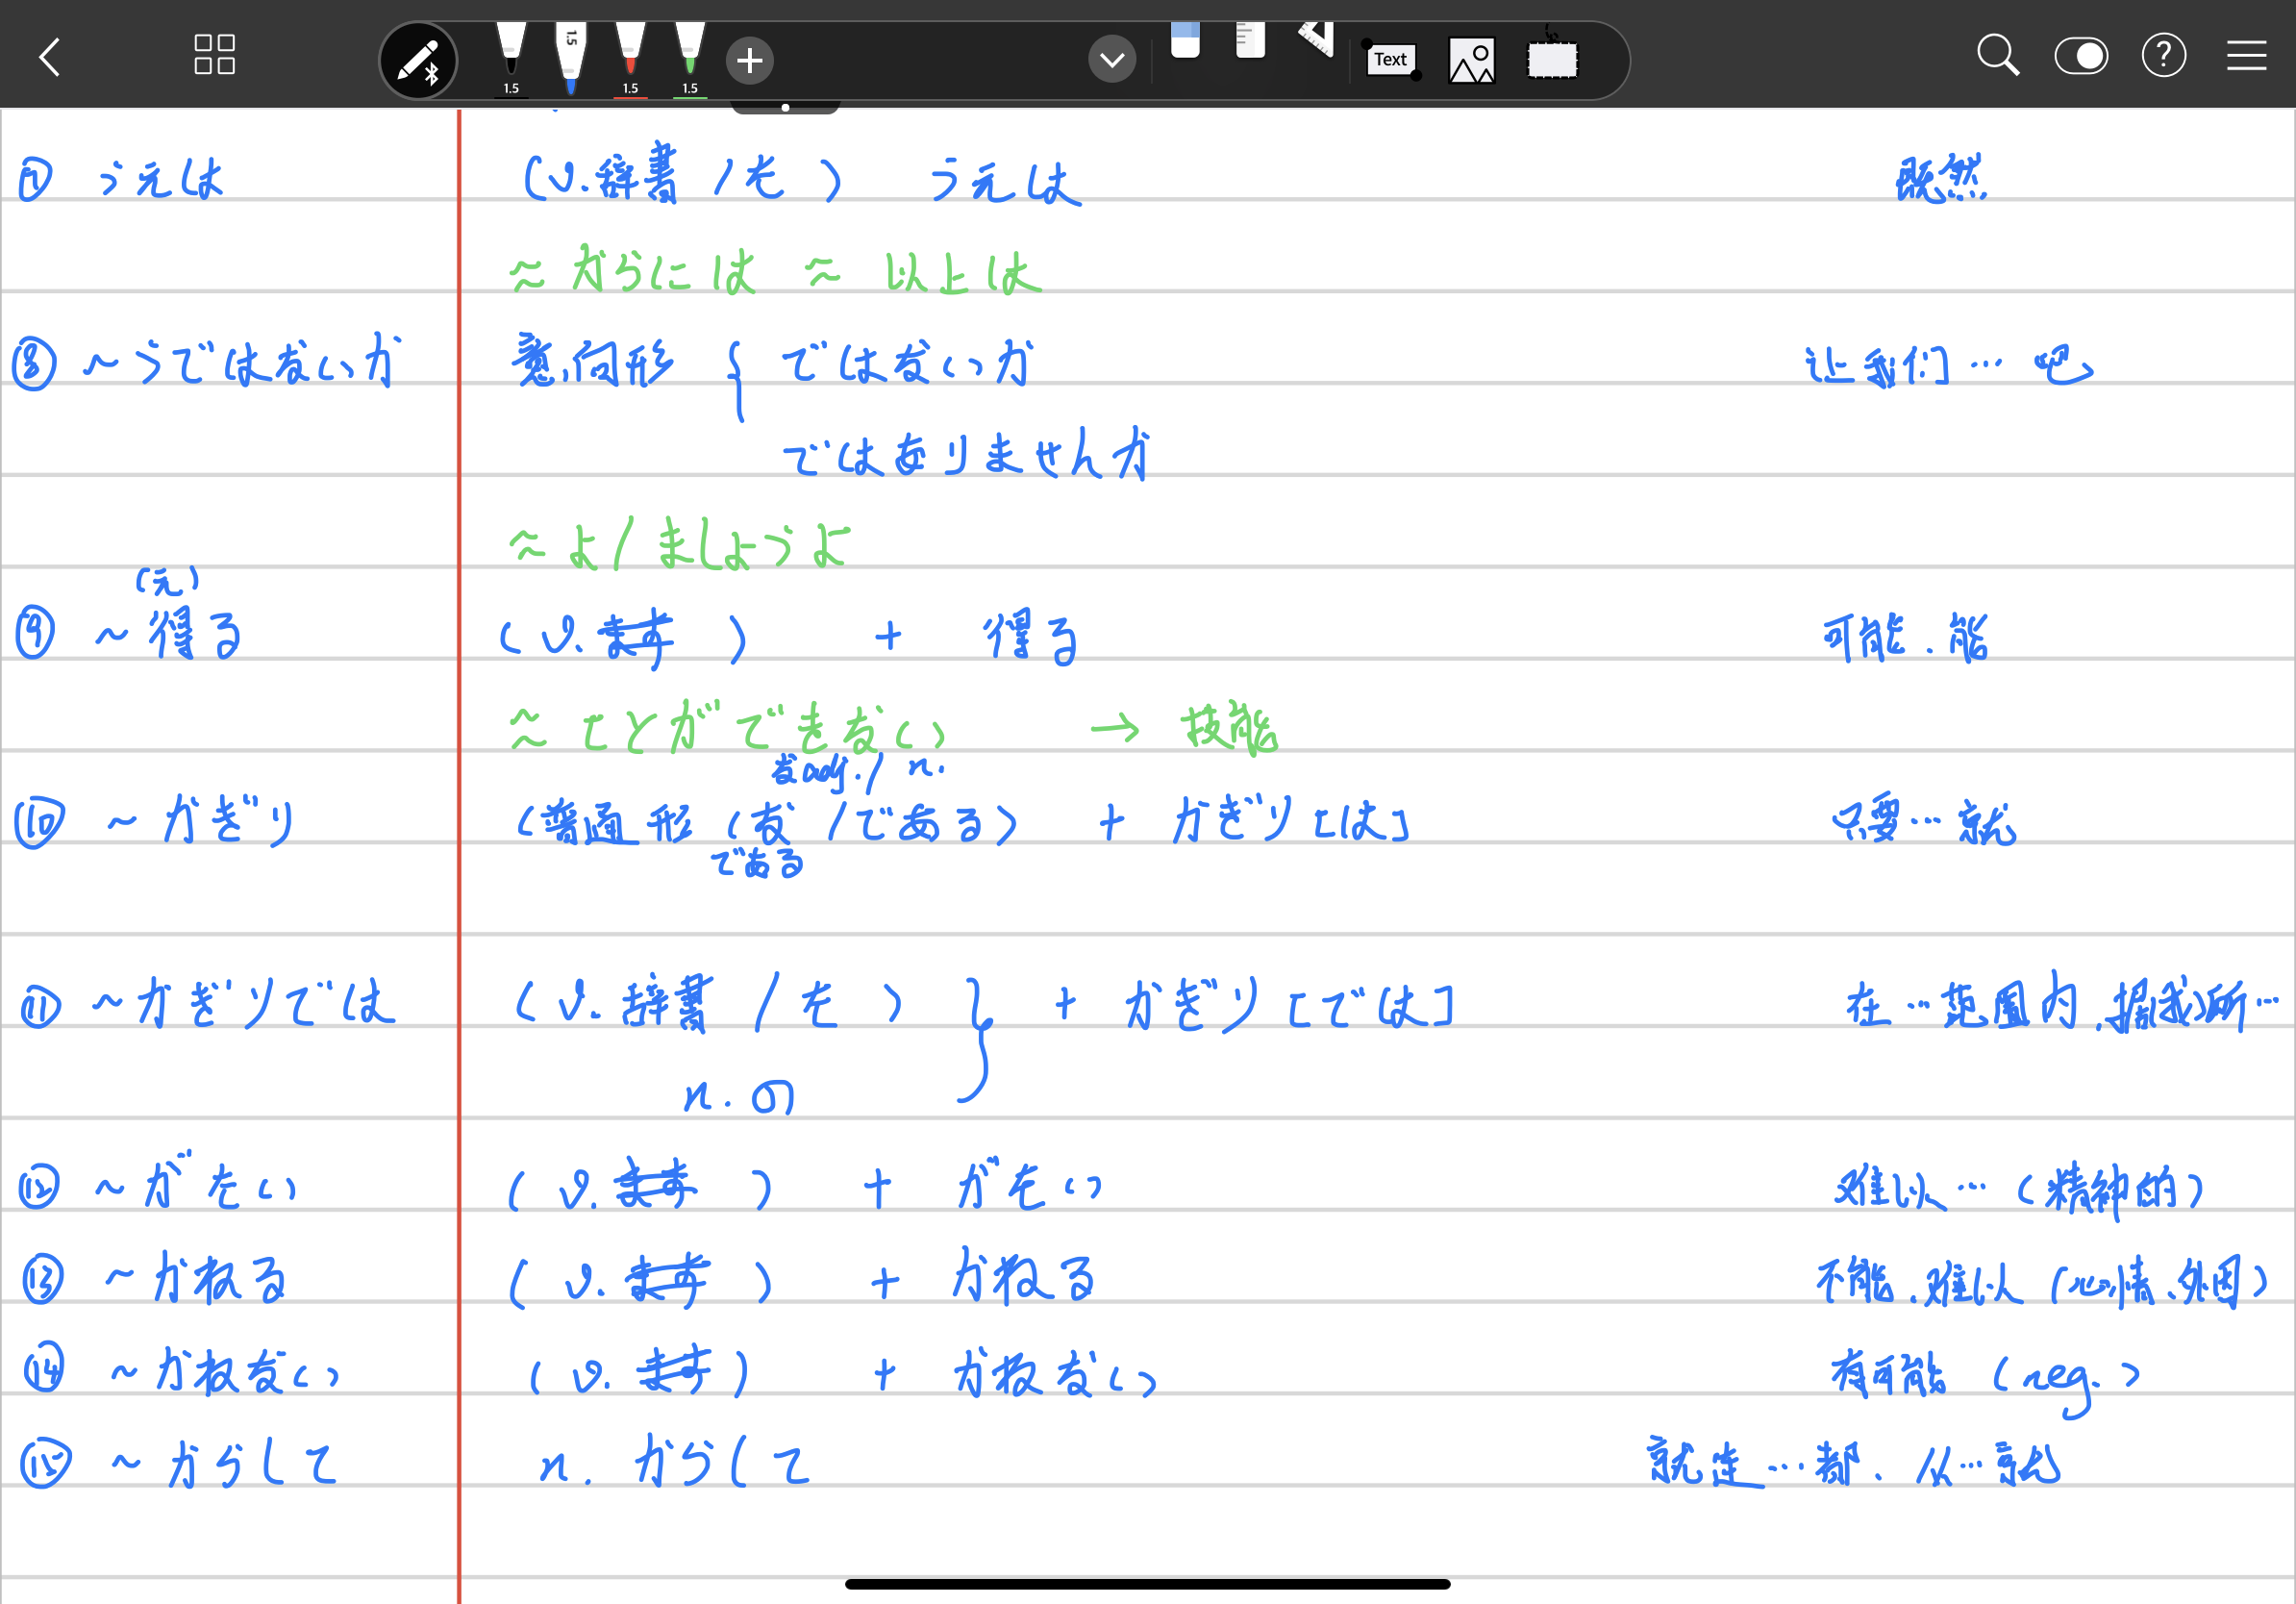 1.5 1.5 1.5 1.5 Text
⑦ うえは (v.辞書/た) うえは 既然
≈ からには ≈ 以上は
⑧ ～ではないか 普通体 ではないか 让我们…吧
ではありませんか
≈ よ/ましょうよ
(え)
⑨ ～得る (v.ます) + 得る 可能．能
≈ ことができない → 技能
な adj./n.
⑩ ～かぎり (普通体 (な/である) + かぎり [は] 只要…就
である
⑪ ～かぎりでは (v.辞書/た) + かぎり [では] 在…范围内．根据…
n.の
⑫ ～がたい (v.ます) + がたい 难以…(精神的)
⑬ ～かねる (v.ます) + かねる 不能．难以 (心情．)
⑭ ～かねない (v.ます) + かねない 有可能 (neg.)
⑮ ～からして n. からして 就连…都．从…来看